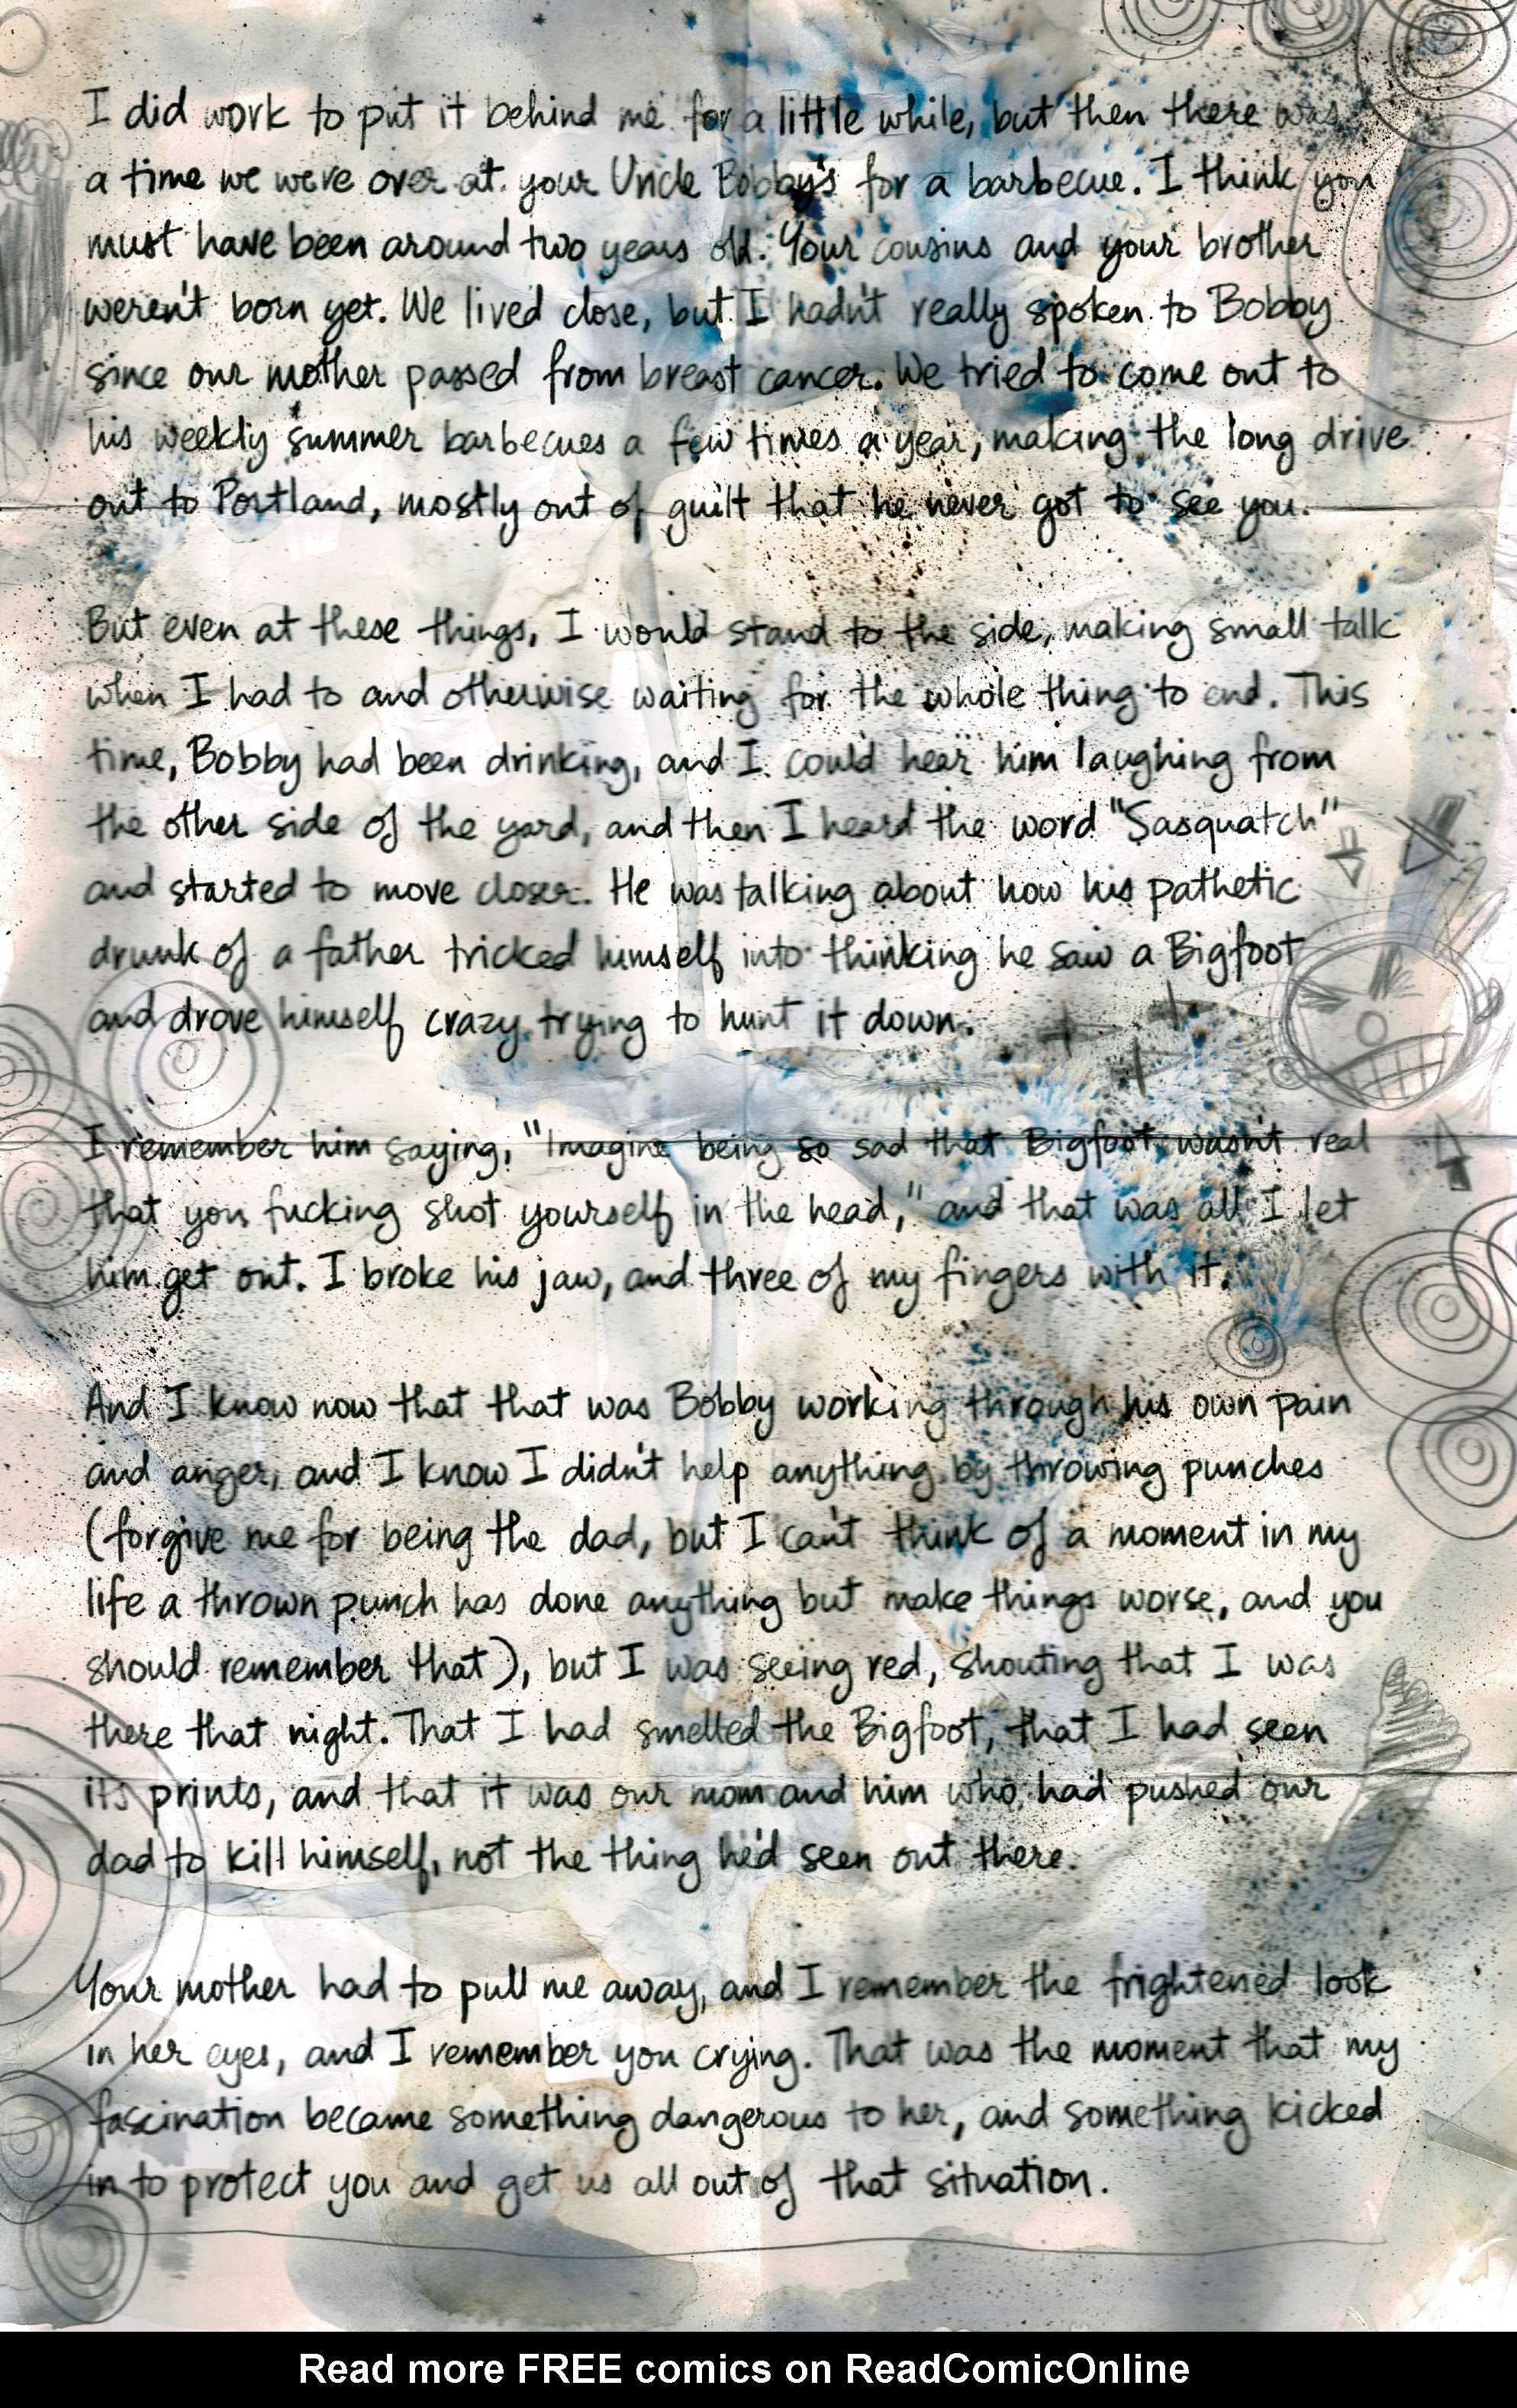 I did work to put it behind me for a little while, but then there was
a time we were over at your Uncle Bobby's for a barbecue. I think you
must have been around two years old. Your cousins and your brother
weren't born yet. We lived close, but I hadn't really spoken to Bobby
since our mother passed from breast cancer. We tried to come out to
his weekly summer barbecues a few times a year, making the long drive
out to Portland, mostly out of guilt that he never got to see you.
But even at these things, I would stand to the side, making small talk
when I had to and otherwise waiting for the whole thing to end. This
time, Bobby had been drinking, and I could hear him laughing from
the other side of the yard, and then I heard the word "Sasquatch"
and started to move closer. He was talking about how his pathetic
drunk of a father tricked himself into thinking he saw a Bigfoot
and drove himself crazy trying to hunt it down.
I remember him saying, "Imagine being so sad that Bigfoot wasn't real
that you fucking shot yourself in the head," and that was all I let
him get out. I broke his jaw, and three of my fingers with it.
And I know now that that was Bobby working through his own pain
and anger, and I know I didn't help anything by throwing punches
(forgive me for being the dad, but I can't think of a moment in my
life a thrown punch has done anything but make things worse, and you
should remember that), but I was seeing red, shouting that I was
there that night. That I had smelled the Bigfoot, that I had seen
its prints, and that it was our mom and him who had pushed our
dad to kill himself, not the thing he'd seen out there.
Your mother had to pull me away, and I remember the frightened look
in her eyes, and I remember you crying. That was the moment that my
fascination became something dangerous to her, and something kicked
in to protect you and get us all out of that situation.
Read more FREE comics on ReadComicOnline